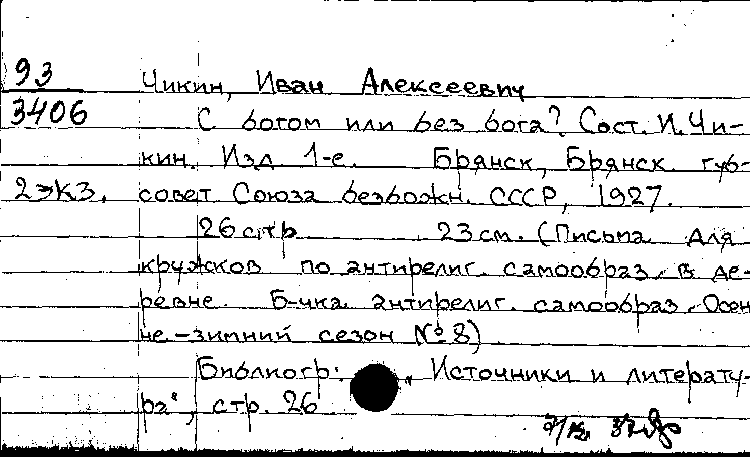 93
Чикин, Иван Алексеевич
3406
С богом или без бога? Сост. И. Чи-
кин. Изд. 1-е. Брянск, Брянск. губ-
2 экз. совет Союза безбожн. СССР, 1927.
26 стр 23 см. (Письма для
кружков по антирелиг. самообраз. в де-
ревне. Б-чка антирелиг. самообраз. Осен
не-зимний сезон № 8)
Библиогр: „Источники и литерату-
ра", стр. 26